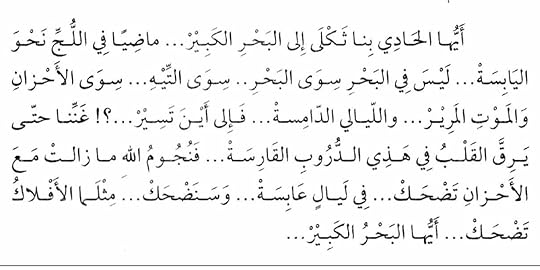 أَيُّها الحَادِي بِنا ثَكْلَى إِلى البَحْرِ الكَبِيْرْ... ماضِيًا في اللُّجِّ نَحْوَ
اليَابِسَةْ... لَيْسَ فِي البَحْرِ سِوَى البَحْرِ.. سِوَى التِّيْهِ... سِوَى الأَحْزانِ
وَالمَوْتِ المَرِيْرْ... واللّيالي الدّامِسةْ... فَإِلى أَيْنَ تَسِيْرْ...؟! غَنِّنا حتّى
يَرِقَّ القَلْبُ فِي هَذِي الـدُّرُوبِ القَارِسَةْ... فَنُجُومُ الله ما زالتْ مَعَ
الأَحْزانِ تَضْحَكْ... فِي لَيـالٍ عَابِسَةْ... وَسَنَضْحَكْ... مِثْلَما الأَفْلاكُ
تَضْحَكْ... أَيُّها البَحْرُ الكَبِيْرْ...